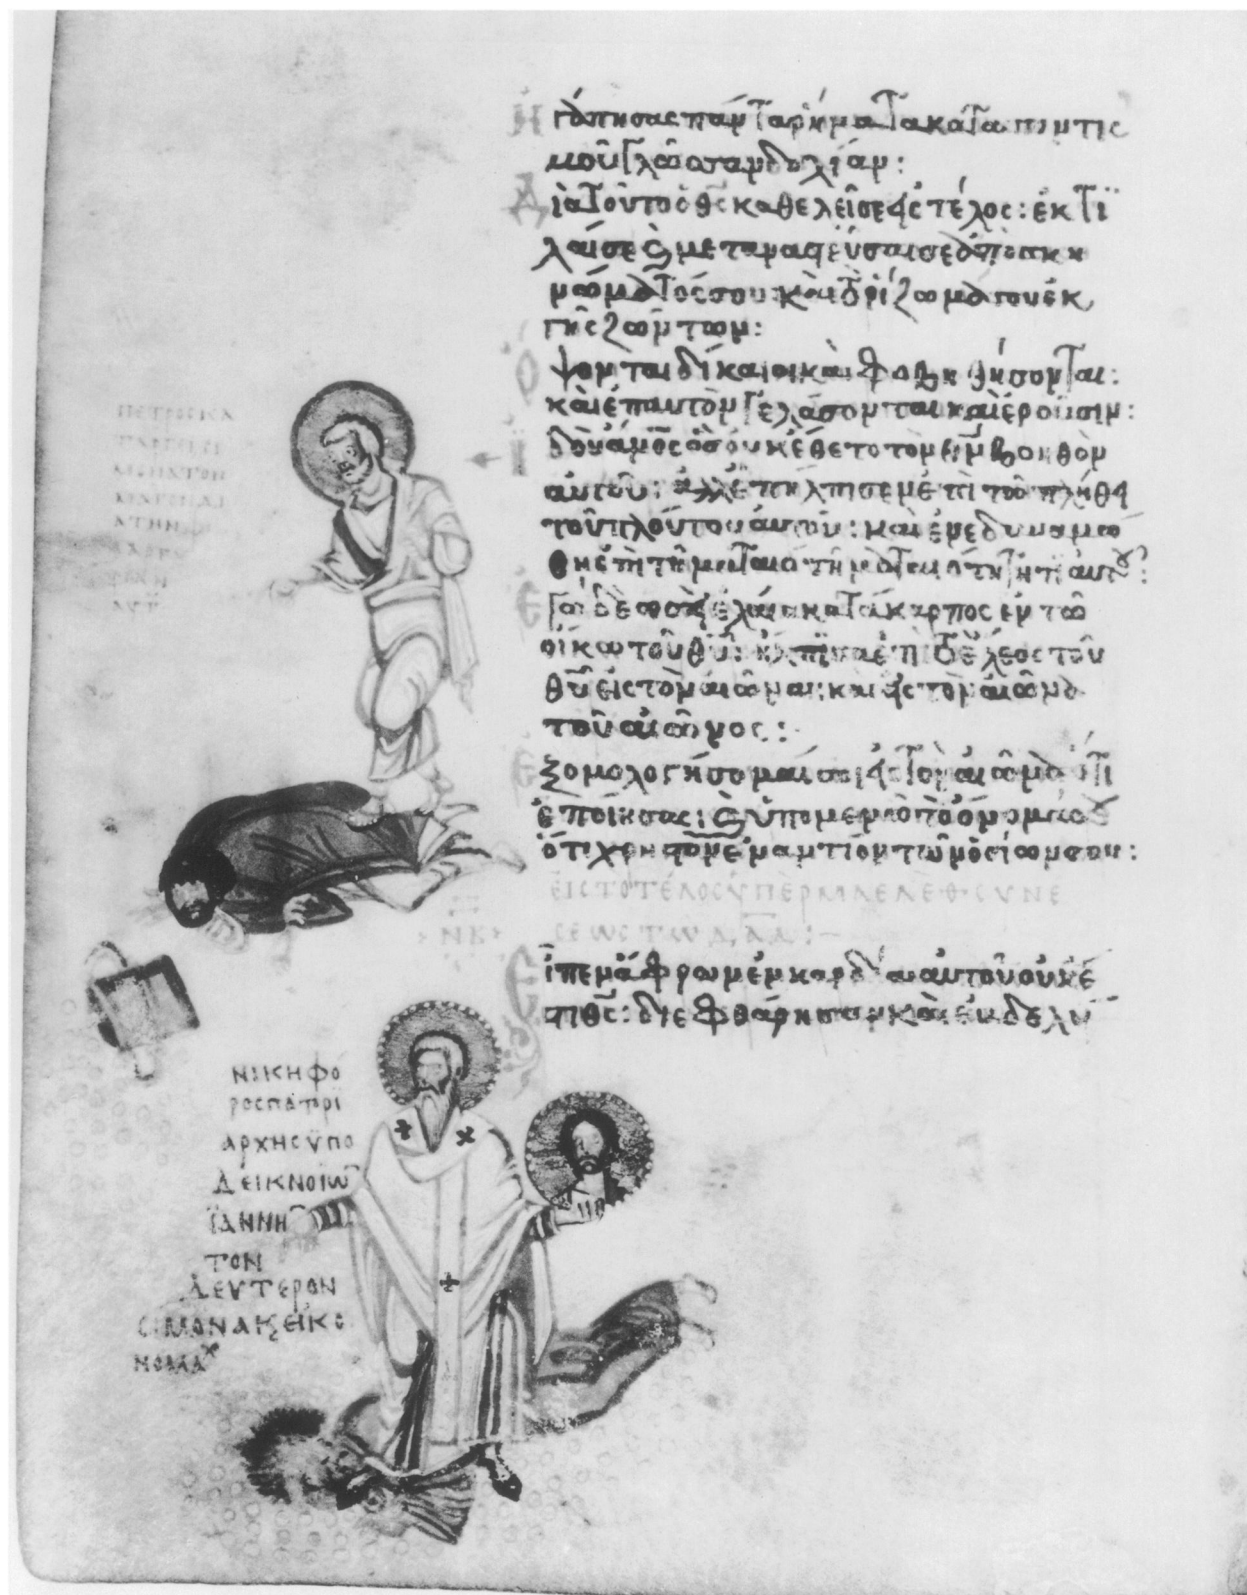 Ἠγάπησας πάντα ρήματα καταποντισ
μοῦ γλῶσσαν δολίαν:
Διὰ τοῦτο ὁ θς καθελεῖ σε εἰς τέλος: ἐκτί
λαι σε καὶ μεταναστεύσαι σε ἀπὸ σκη
νώματός σου καὶ τὸ ρίζωμά σου ἐκ
γῆς ζώντων:
Ὄψονται δίκαιοι καὶ φοβηθήσονται:
καὶ ἐπαυτὸν γελάσονται καὶ ἐροῦσιν:
Ἰδοὺ ἄνος ὃς οὐκ ἔθετο τὸν θν βοηθὸν
αὐτοῦ: ἀλλ' ἐπήλπισεν ἐπὶ τῶ πλήθει
τοῦ πλούτου αὐτοῦ: καὶ ἐνεδυναμώ
θη ἐπὶ τῆ ματαιότητι αὐτοῦ:
Ἐγὼ δὲ ὡσεὶ ἐλαία κατάκαρπος ἐν τῶ
οἴκω τοῦ θυ: ἤλπισα ἐπὶ τὸ ἔλεος τοῦ
θυ εἰς τὸν αἰῶνα: καὶ εἰς τὸν αἰῶνα
τοῦ αἰῶνος:
Ἐξομολογήσομαί σοι εἰς τὸν αἰῶνα ὅτι
ἐποίησας: καὶ ὑπομενῶ τὸ ὄνομά σου
ὅτι χρηστὸν ἐναντίον τῶν ὁσίων σου:
ΕΙΣ ΤΟ ΤΕΛΟΣ ΥΠΕΡ ΜΑΕΛΕΘ ΣΥΝΕ
ΣΕΩΣ ΤΩ ΔΑΔ:
ΝΒ
Εἶπεν ἄφρων ἐν καρδία αὐτοῦ οὐκ ἔ
στι θς: διεφθάρησαν καὶ ἐβδελύ
ΠΕΤΡΟΣ ΚΑ
ΝΙΚΗΦΟ
ΡΟΣ ΠΑΤΡΙ
ΑΡΧΗΣ ΥΠΟ
ΔΕΙΚΝΟΙΩ
ΪΑΝΝΗ
ΤΟΝ
ΔΕΥΤΕΡΟΝ
ΣΙΜΟΝΑ Κ ΕΙΚΟ
ΝΟΜΑΧ